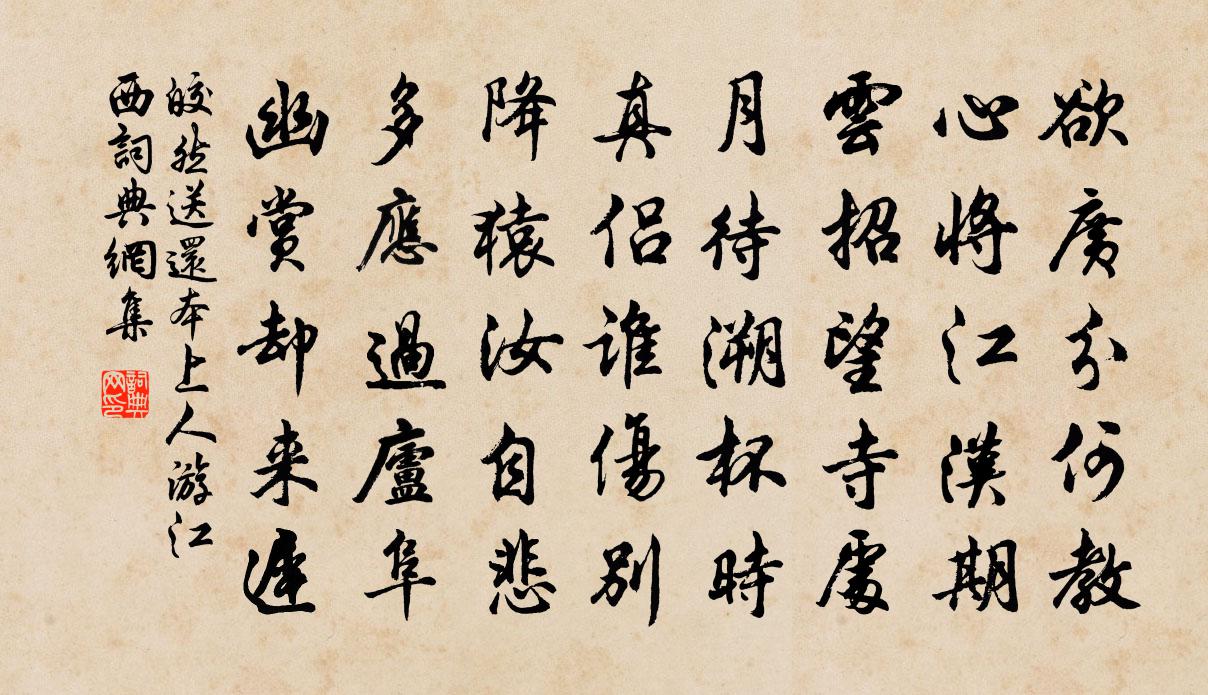 欲廣分何教
心將江漢期
雲招望寺處
月待溯杯時
真侶誰傷別
降猿汝自悲
多應過廬阜
幽賞却来遲
皎然送還本上人游江
西詞典網集
詞典
网印